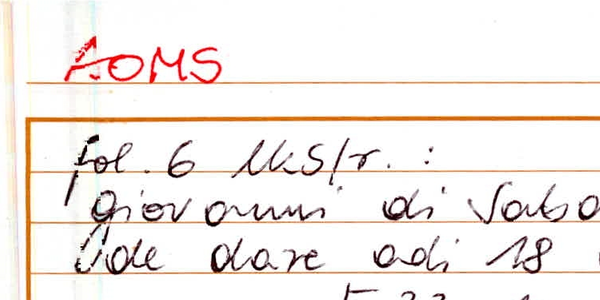 AOMS
fol. 6 lks/r. :
giovanni di Sabo
de dare adi 18